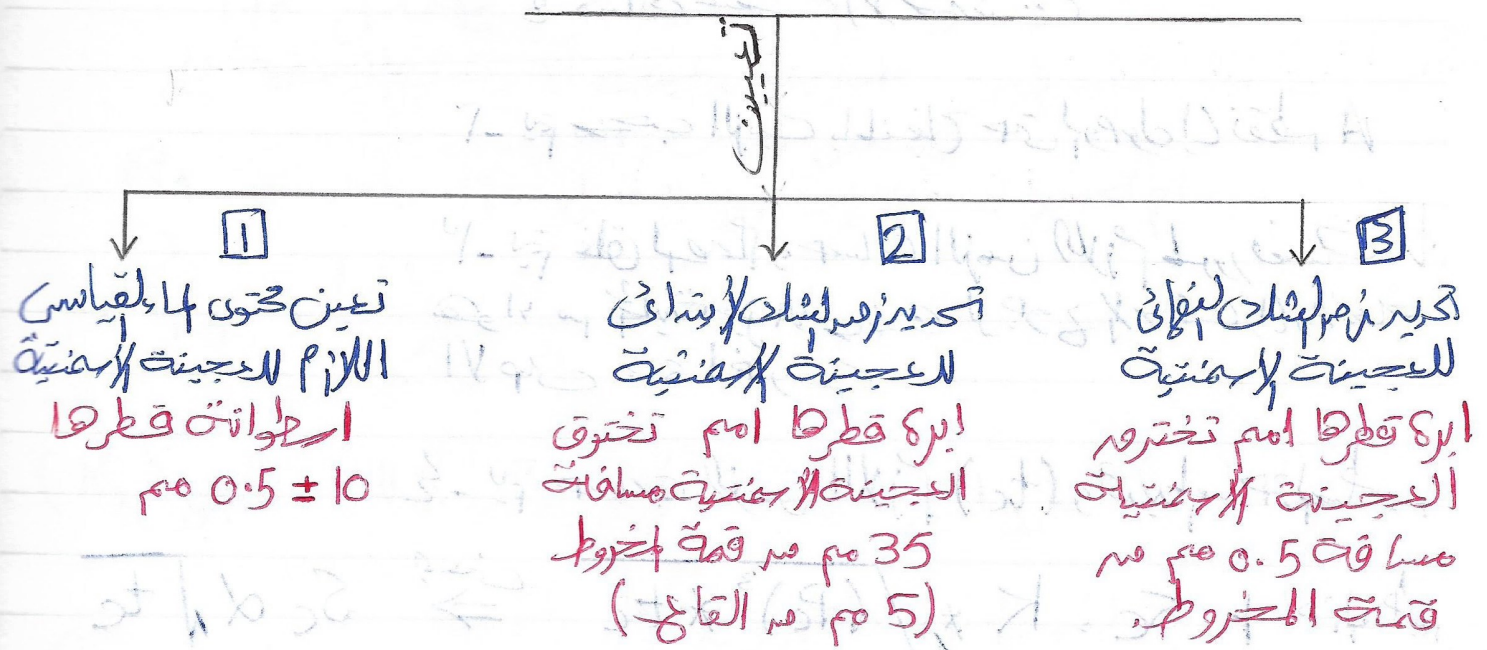 تعيين
1
تعين محتوى الماء القياسي
اللازم للعجينة الاسمنتية
اسطوانة قطرها
10 ± 0.5 مم
2
تحديد زمن الشك الابتدائي
للعجينة الاسمنتية
ابرة قطرها 1مم تخترق
العجينة الاسمنتية مسافة
35 مم من قمة المخروط
(5 مم من القاع)
3
تحديد زمن الشك النهائي
للعجينة الاسمنتية
ابرة قطرها 1مم تخترق
العجينة الاسمنتية
مسافة 0.5 مم من
قمة المخروط.